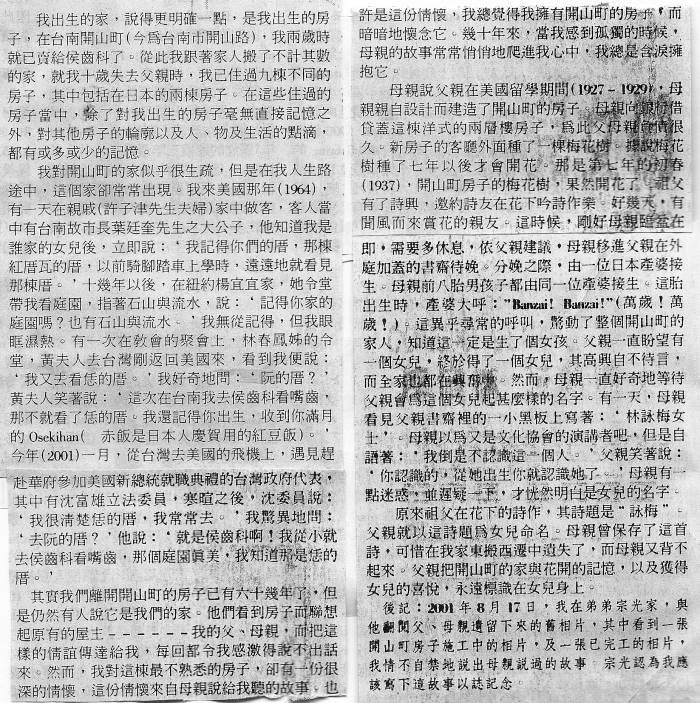 我出生的家，說得更明確一點，是我出生的房
子，在台南開山町(今爲台南市開山路)，我兩歲時
就已賣給侯齒科了。從此我跟著家人搬了不計其數
的家，就我十歲失去父親時，我已住過九棟不同的
房子，其中包括在日本的兩棟房子。在這些住過的
房子當中，除了對我出生的房子毫無直接記憶之
外，對其他房子的輪廓以及人、物及生活的點滴，
都有或多或少的記憶。
我對開山町的家似乎很生疏，但是在我人生路
途中，這個家卻常常出現。我來美國那年(1964)，
有一天在親戚(許子津先生夫婦)家中做客，客人當
中有台南故市長葉廷奎先生之大公子，他知道我是
誰家的女兒後，立即說：‘我記得你們的厝，那棟
紅厝瓦的厝，以前騎腳踏車上學時，遠遠地就看見
那棟厝。’十幾年以後，在紐約楊宜宜家，她令堂
帶我看庭園，指著石山與流水，說：‘記得你家的
庭園嗎？也有石山與流水。’我無從記得，但我眼
眶濕熱。有一次在教會的聚會上，林春鳳姊的令
堂，黃夫人去台灣剛返回美國來，看到我便說：
‘我又去看恁的厝。’我好奇地問：‘阮的厝？’
黃夫人笑著說：‘這次在台南我去侯齒科看嘴齒，
那不就看了恁的厝。我還記得你出生，收到你滿月
的 Osekihan( 赤飯是日本人慶賀用的紅豆飯)。’
今年(2001)一月，從台灣去美國的飛機上，遇見趕
赴華府參加美國新總統就職典禮的台灣政府代表，
其中有沈富雄立法委員，寒暄之後，沈委員說：
‘我很清楚恁的厝，我常常去。’我驚異地問：
‘去阮的厝？’他說：‘就是侯齒科啊！我從小就
去侯齒科看嘴齒，那個庭園眞美，我知道那是恁的
厝。’
其實我們離開開山町的房子已有六十幾年了，但
是仍然有人說它是我們的家。他們看到房子而聯想
起原有的屋主－－－－－－－我的父、母親，而把這
樣的情誼傳達給我，每回都令我感激得說不出話
來。然而，我對這棟最不熟悉的房子，卻有一份很
深的情懷，這份情懷來自母親說給我聽的故事。也
許是這份情懷，我總覺得我擁有開山町的房子，而
暗暗地懷念它。幾十年來，當我感到孤獨的時候，
母親的故事常常悄悄地爬進我心中，我總是含淚擁
抱它。
母親說父親在美國留學期間(1927－1929)，母
親親自設計而建造了開山町的房子。母親向銀行借
貸蓋這棟洋式的兩層樓房子，爲此父母親自情很
久。新房子的客廳外面種了一棵梅花樹。據說梅花
樹種了七年以後才會開花。那是第七年的初春
(1937)，開山町房子的梅花樹，果然開花了。祖父
有了詩興，邀約詩友在花下吟詩作樂。好幾天，有
聞風而來賞花的親友。這時候，剛好母親臨盆在
即，需要多休息，依父親建議，母親移進父親在外
庭加蓋的書齋待娩。分娩之際，由一位日本產婆接
生。母親前八胎男孩子都由同一位產婆接生。這胎
出生時，產婆大呼："Banzai! Banzai!"(萬歲！萬
歲！)。這異乎尋常的呼叫，驚動了整個開山町的
家人，知道這一定是生了個女孩。父親一直盼望有
一個女兒，終於得了一個女兒，其高興自不待言，
而全家也都在興奮中。然而，母親一直好奇地等待
父親會爲這個女兒起甚麼樣的名字。有一天，母親
看見父親書齋裡的一小黑板上寫著：‘林詠梅女
士’。母親以爲又是文化協會的演講者吧，但是自
語著：‘我倒是不認識這一個人。’父親笑著說：
‘你認識的，從她出生你就認識她了。’母親有一
點迷惑，並遲疑一下，才恍然明白是女兒的名字。
原來祖父在花下的詩作，其詩題是“詠梅”。
父親就以這詩題爲女兒命名。母親曾保存了這首
詩，可惜在我家東搬西遷中遺失了，而母親又背不
起來。父親把開山町的家與花開的記憶，以及獲得
女兒的喜悅，永遠標識在女兒身上。
後記：2001 年 8 月 17 日，我在弟弟宗光家，與
他翻閱父、母親遺留下來的舊相片，其中看到一張
開山町房子施工中的相片，及一張已完工的相片，
我情不自禁地說出母親說過的故事。宗光認為我應
該寫下這故事以誌記念。